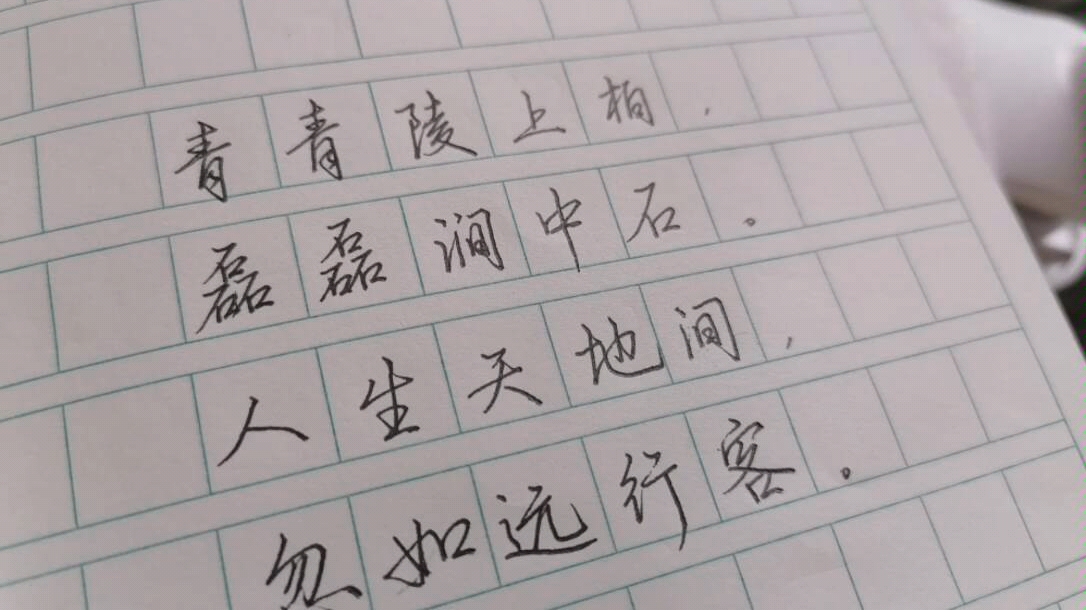 青青陵上柏，
磊磊涧中石。
人生天地间，
忽如远行客。